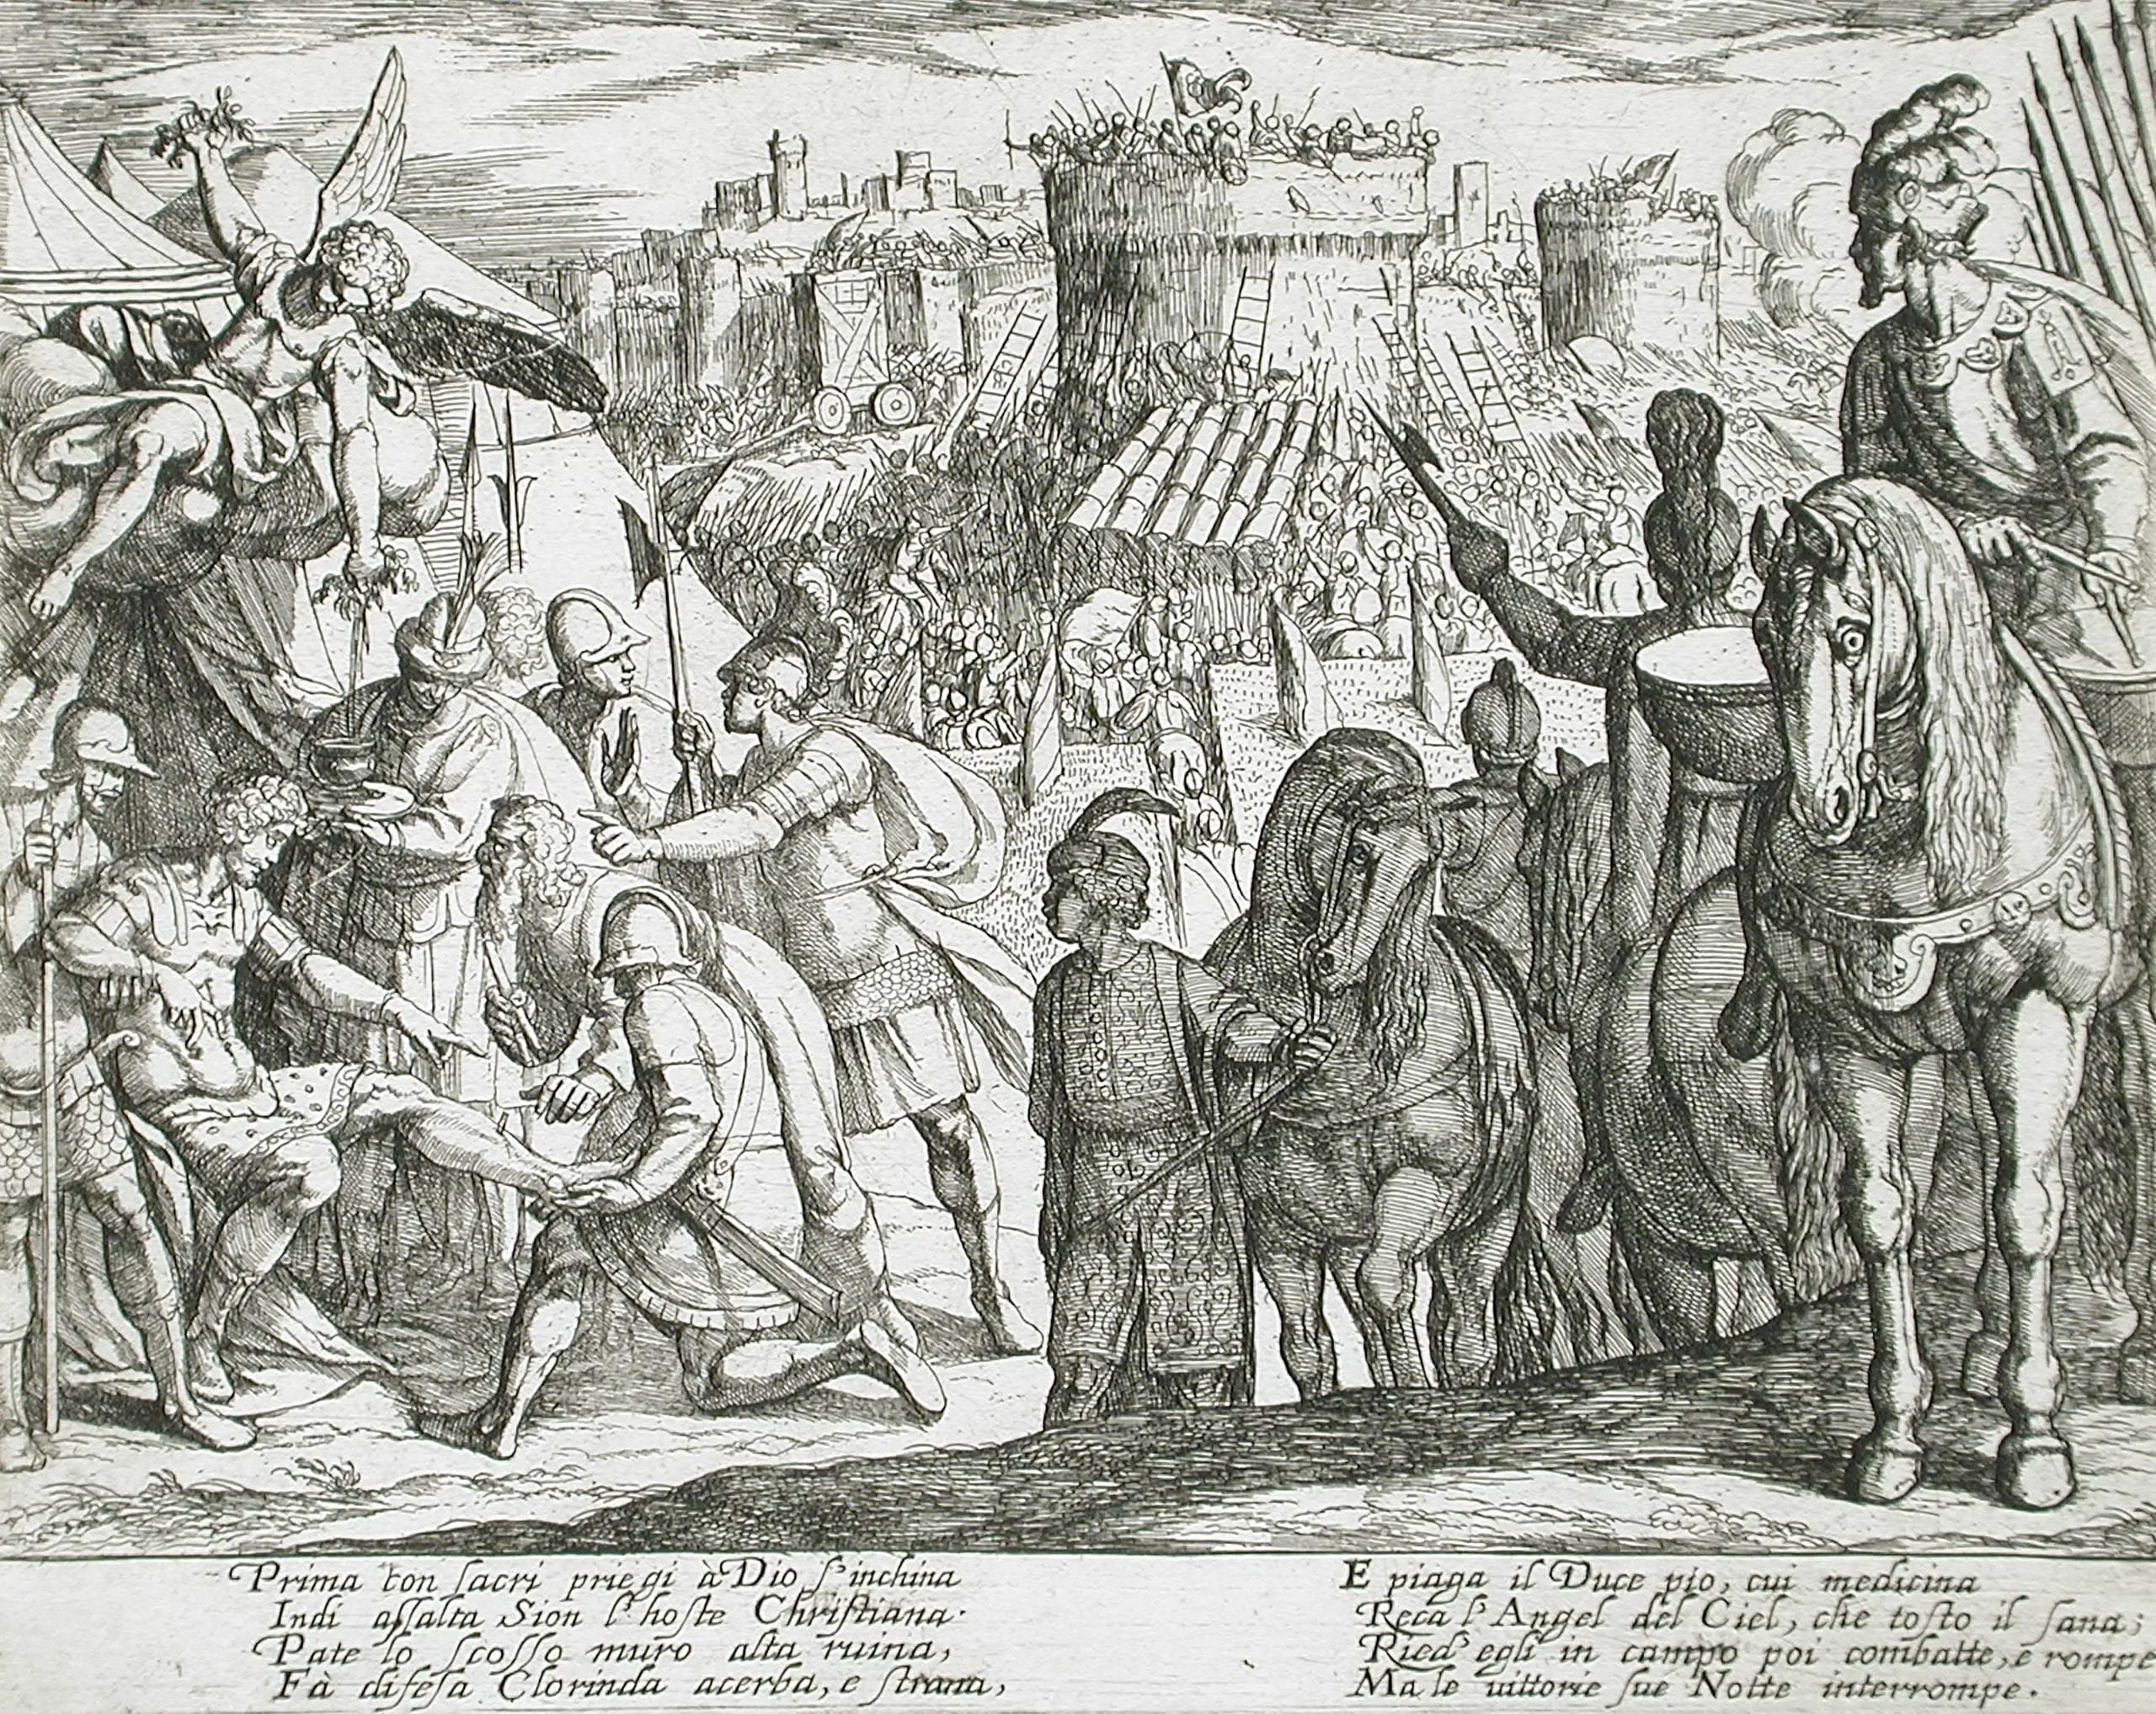 Prima con ſacri priegi à Dio s'inchina
Indi aſſalta Sion l'hoſte Chriſtiana.
Pate lo ſcoſſo muro alta ruina,
Fà difeſa Clorinda acerba, e ſtrana,
E piaga il Duce pio, cui medicina
Reca l'Angel del Ciel, che toſto il ſana;
Ried' egli in campo poi combatte, e rompe
Ma le uittorie ſue Notte interrompe.